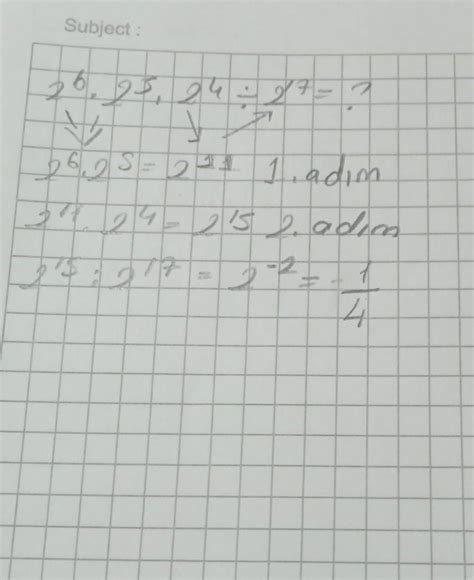 Subject :
2⁶. 2⁵. 2⁴ ÷ 2¹⁷ = ?
2⁶.2⁵ = 2¹¹ 1. adım
2¹¹. 2⁴ = 2¹⁵ 2. adım
2¹⁵ : 2¹⁷ = 2⁻² = -1/4